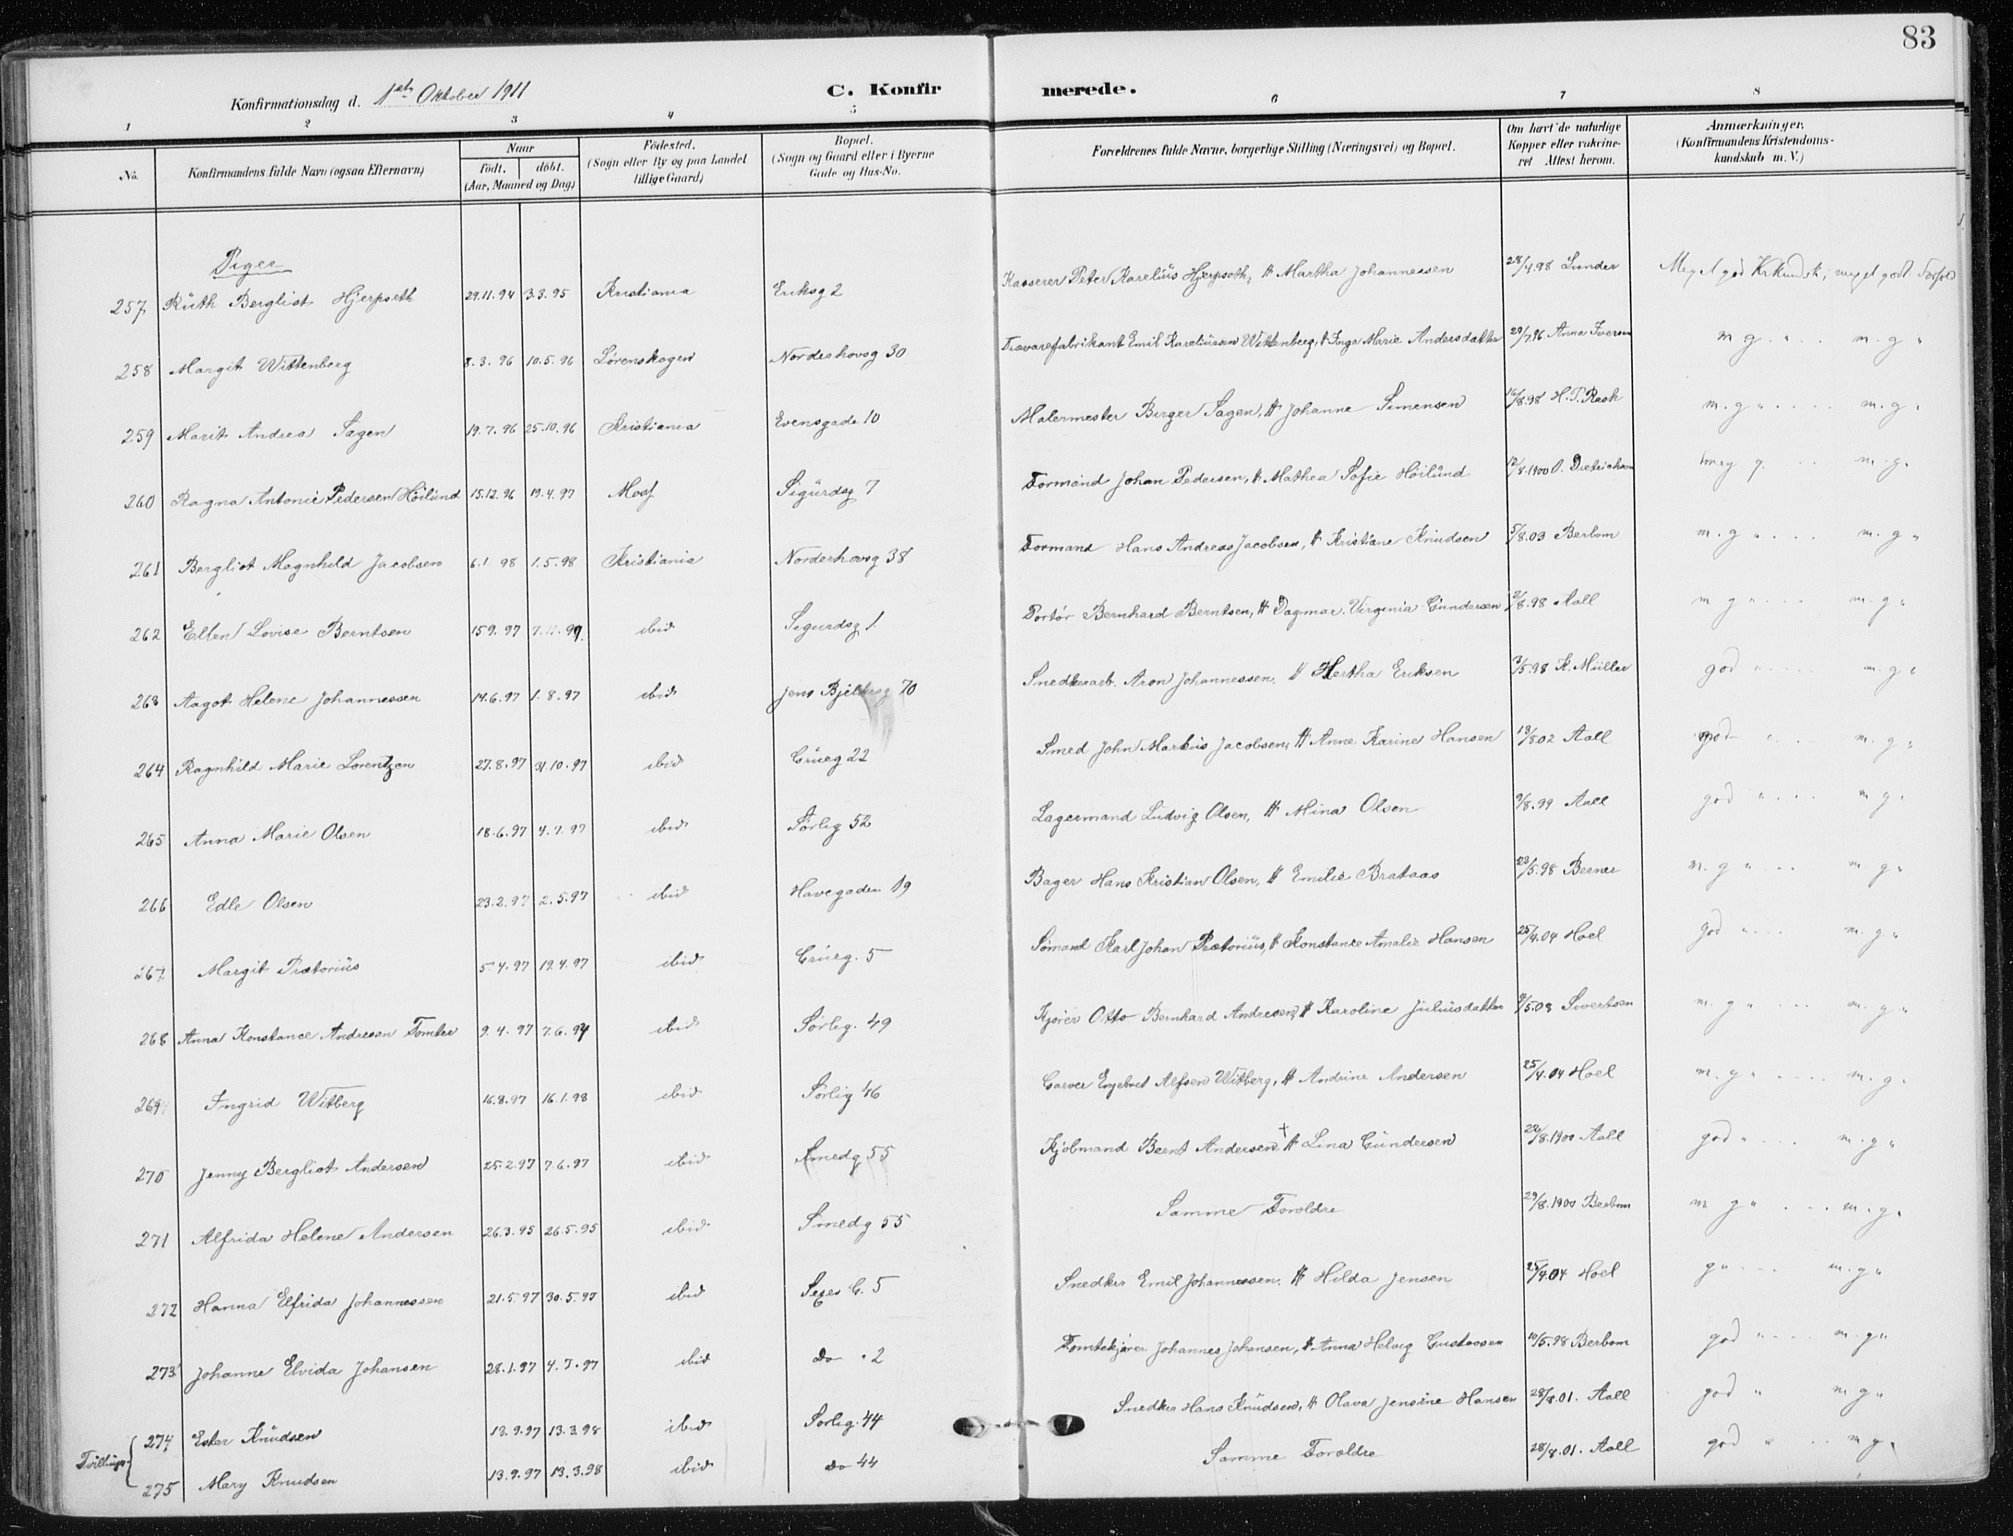 83
Konfirmationsdag d. 1ste Oktober 1911 C. Konfirmerede.
1 2 3 4 5 6 7 8
No. Konfirmandens fulde Navn (ogsaa Efternavn) Naar Födt. döbt. (Aar, Maaned og Dag) Födested. (Sogn eller By og paa Landet tillige Gaard) Bopæl. (Sogn og Gaard eller i Byerne Gade og Hus-No. Forældrenes fulde Navne, borgerlige Stilling (Næringsvei) og Bopæl. Om havt de naturlige Kopper eller vakcineret Attest herom. Anmærkninger. (Konfirmandens Kristendomskundskab m. V.)
Piger
257 Ruth Bergliot Hjerpseth 29.11.94 3.3.95 Kristiania Eriksg 2 Kasserer Peter Karelius Hjerpseth, & Martha Johannessen 28/4.98 Lunder Meget god Kr.kundsk; meget godt Forhold
258 Margit Wittenberg 8.3.96 10.5.96 Lørenskogen Norderhovsg 30 Trævarefabrikant Emil Kareliussen Wittenberg, & Inga Marie Andersdatter 29/7.96 Anna Iversen m g " . . m. g "
259 Marit Andrea Sagen 19.7.96 25.10.96 Kristiania Evensgade 10 Malermester Birger Sagen, & Johanne Simensen 16/8.98 H.P. Rask m. g " . . . m. g "
260 Ragna Antonie Pedersen Höilund 15.12.96 19.4.97 Moss Sigurdsg 7 Formand Johan Pedersen, & Mathea Sofie Höilund 12/8.1900 O. Dietrichson meg g. . . m. g "
261 Bergliot Magnhild Jacobsen 6.1 98 1.5.98 Kristiania Norderhovsg 38 Formand Hans Andreas Jacobsen, & Kristiane Knudsen 5/8.03 Berbom m. g " . . . m. g "
262 Ellen Lovise Berntsen 15 9.97 7.11.97 ibid Sigurdsg 1 Portör Bernhard Berntsen, & Dagmar Virginia Gundersen 2/8.98 Aall m g " . . . m. g "
263 Aagot Helene Johannessen 14.6.97 1.8.97 ibid Jens Bjelkesg 70 Snedkerarb. Aron Johannessen, & Hertha Eriksen 3/5.98 K. Müller god " . . . m. g "
264 Ragnhild Marie Lorentzen 27.8.97 31 10.97 ibid Grüneg 22 Smed John Markus Jacobsen, & Anne Karine Hansen 19/8 02 Aall god " . . m. g "
265 Anna Marie Olsen 18.6.97 4.7.97 ibid Sørlig 52 Lagermand Ludvig Olsen, & Mina Olsen 9/8.99 Aall god " . . . m g "
266 Edle Olsen 23.2.97 2.5.97 ibid Havegaden 19 Bager Hans Kristian Olsen, & Emilie Brataas 23/5.98 Berner m. g " . . m. g "
267 Margit Prætorius 5.4.97 19.4.97 ibid Grüneg. 5 Sömand Karl Johan Prætorius, & Konstance Amalie Hansen 25/4.04 Hoel god " . . . m. g "
268 Anna Konstance Andresen Tomter 9.4.97 7.6.97 ibid Sørlig. 49 Kjører Otto Bernhard Andresen, & Karoline Juliusdatter 9/5.03 Sivertsen m. g " . . . m. g "
269 Ingrid Witberg 16.8.97 16.1.98 ibid Sørlig 46 Garver Engebret Alfsen Witberg, & Andrine Andersen 25/4.04 Hoel m. g " . . . m. g "
270 Jenny Bergliot Andersen 25.2.97 7.6.97 ibid Smedg 55 Kjöbmand Bernt Andersen, & Lina Gundersen 22/8.1900 Aall god " . . . m. g "
271 Alfrida Helene Andersen 26.3.95 26.5.95 ibid Smedg 55 Samme Foroldre 29/8.1900 Berbom m g " . . . m. g "
272 Hanna Elfrida Johannessen 21.5.97 30.5.97 ibid Seges G. 5 Snedker Emil Johannessen, & Hilda Jensen 25/4.04 Hoel g " . . . m. g "
273 Johanne Elvida Johansen 28.1.97 4.7.97 ibid do " 2 Tomtekjører Johannes Johansen, & Anna Helvig Gustavsen 10/5.98 Berbom god " . . . m. g "
274 Ester Knudsen 13.9.97 13.3.98 ibid Sørlig. 44 Snedker Hans Knudsen, & Olava Jensine Hansen 28/8.01. Aall god " m g "
Tvillinger
275 Mary Knudsen 13.9.97 13.3.98 ibid do 44 Samme Foroldre 28/8.01. Aall god " . . m g "